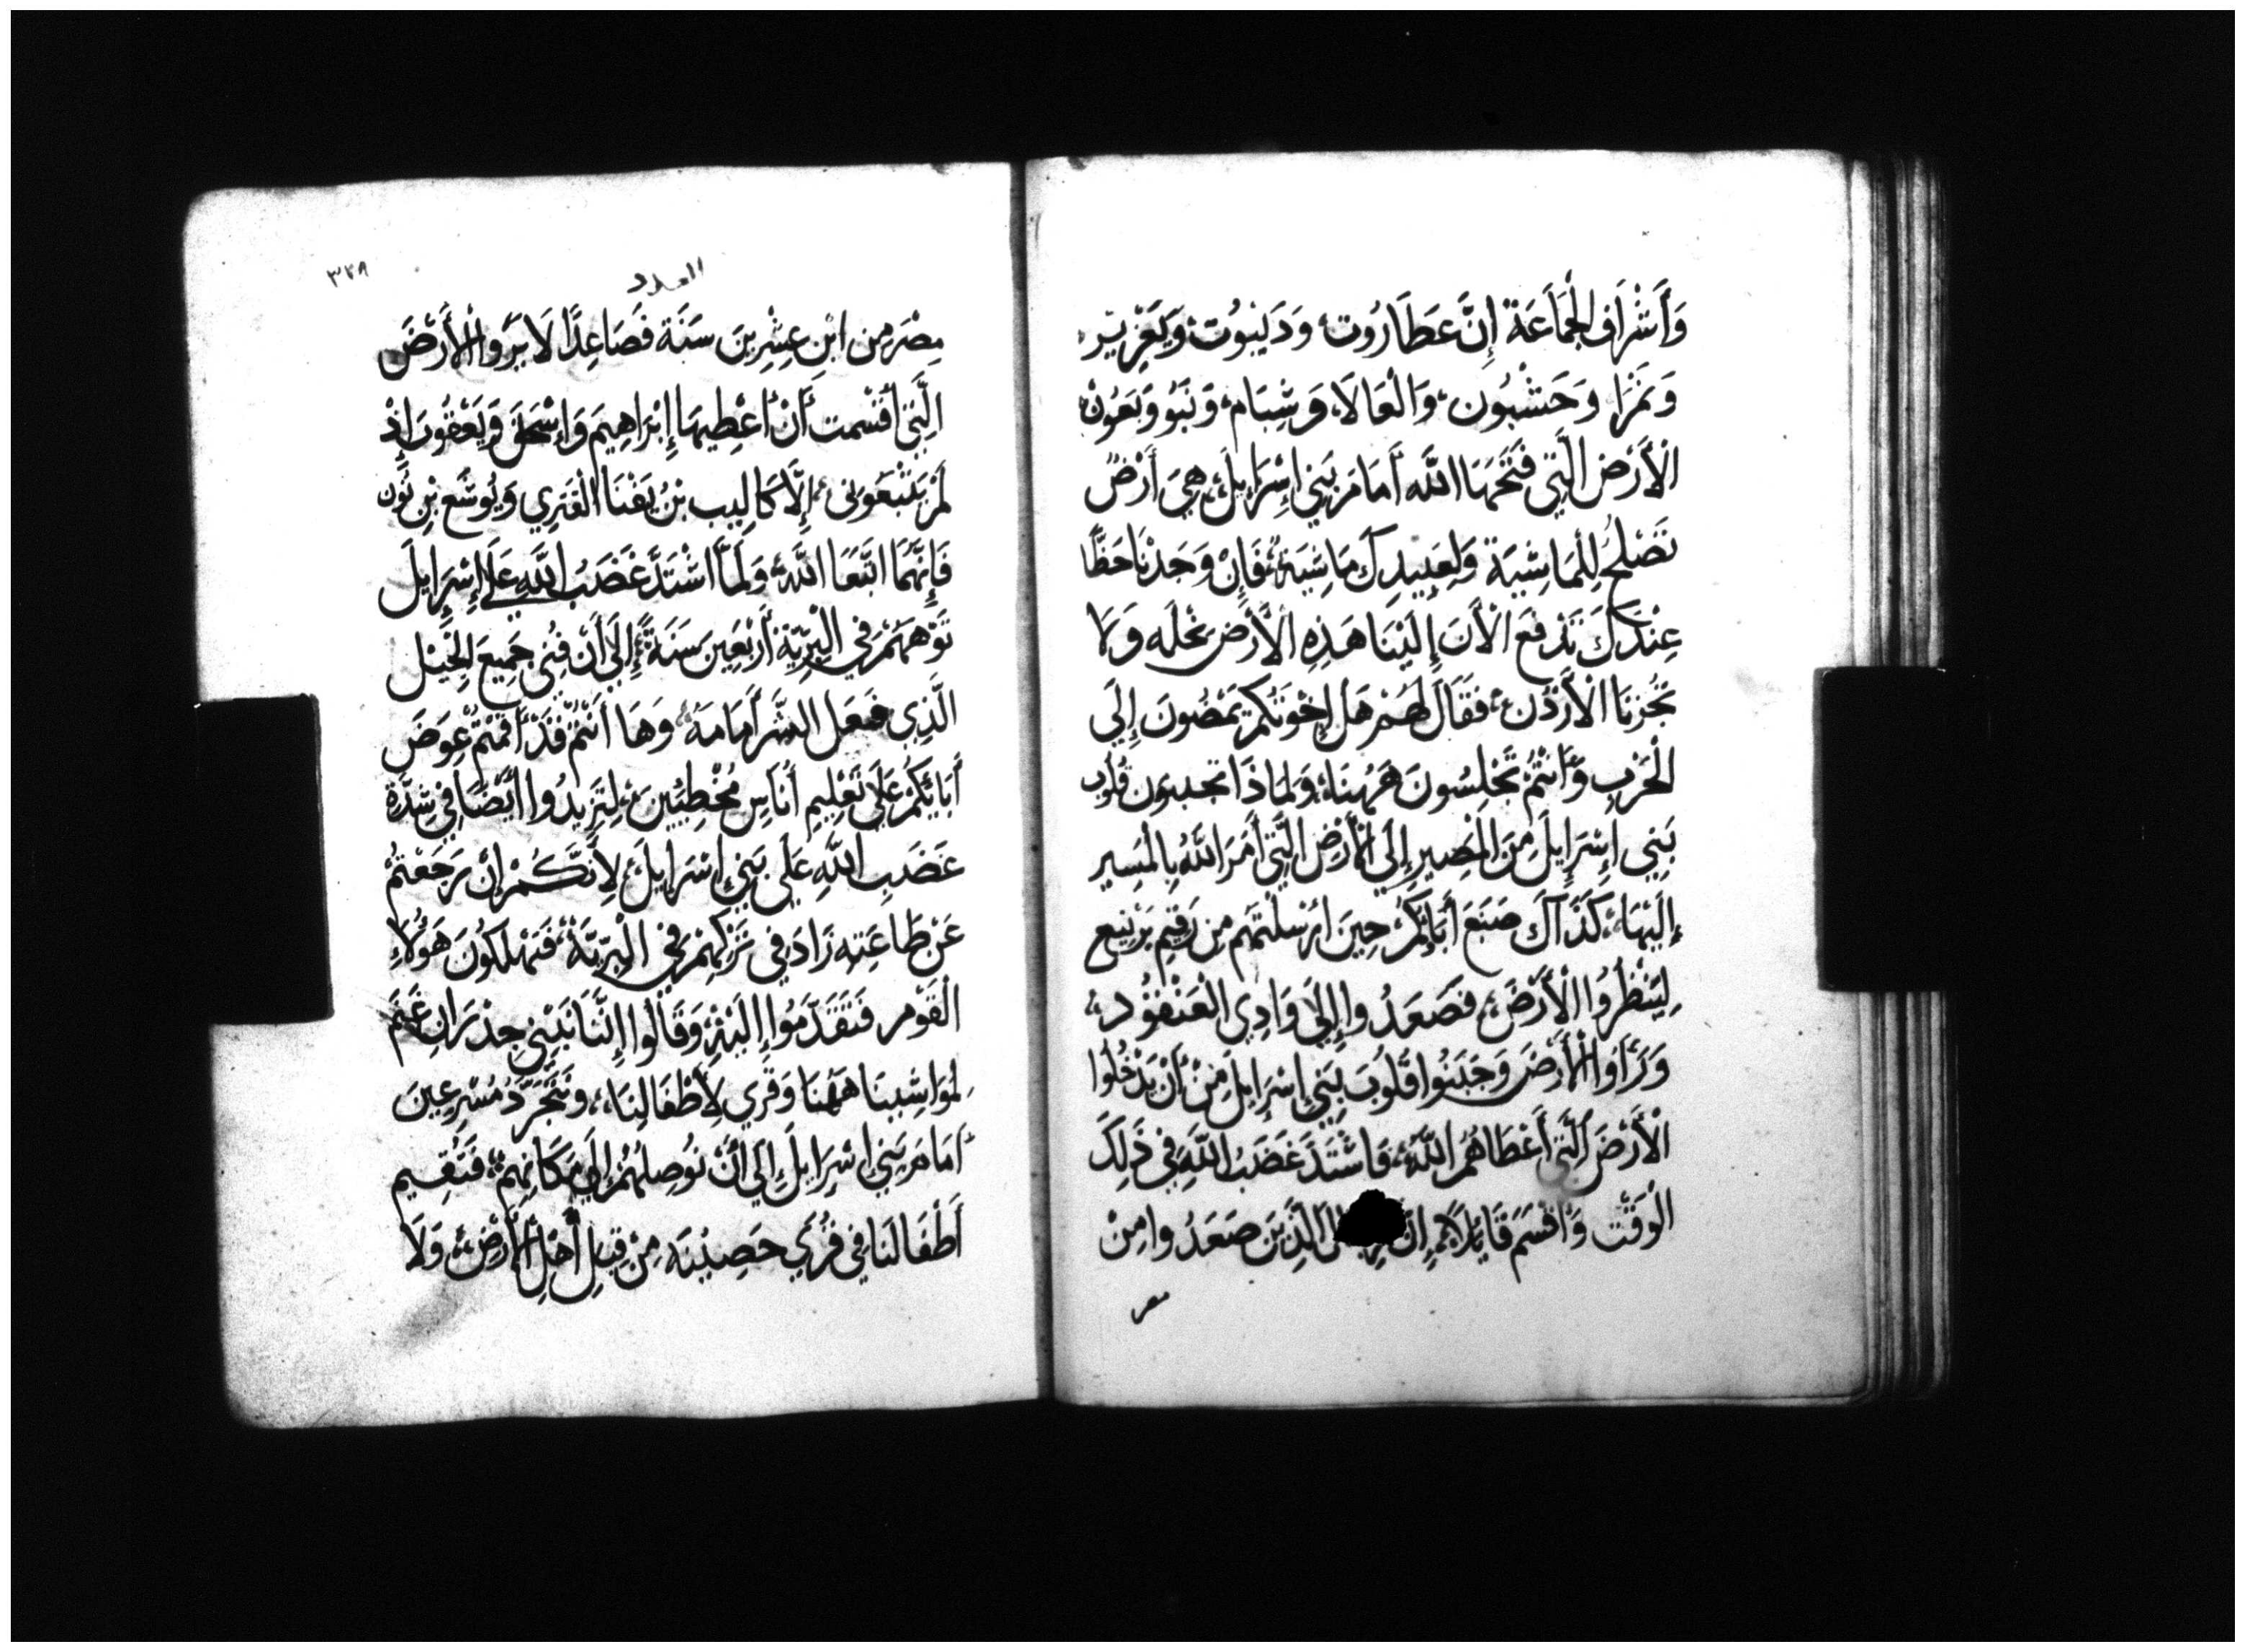 وَأَشْرَافِ الْجَمَاعَة إِنَّ عَطَارُوت، وَدَيْبُوت، وَيَعْزِيْر،
وَنَمْرَا وَحَشْبُون، وَالْعَالَا، وَشِبَام، وَنَبُو وَبَعُونْ
الْأَرَض الَّتِي فَتَحَهَا اللَّه أَمَامَ بَنِي إِسْرَايِلَ، هِيَ أَرْضٌ
تَصْلُحُ لِلْمَاشِيَة وَلِعَبِيدِكَ مَاشِيَة، فَإِنْ وَجَدْنَا حَظًّا
عِنْدَكَ تَدْفَع الْأَنَ إِلَيْنَا هَذِهِ الْأَرَض نِحْلَه وَلَا
تُجُزنَا الْأَرْدُن، فَقَالَ لَهُمْ هَلْ إِخْوَتُكُمْ يَمْضُونَ إِلَي
الْحَرْبِ وَأَنْتُمْ تَجْلِسُونَ هَهُنَا، وَلِمَاذَا تجدبون قُلُوب
بَنِي إِسْرَايِلَ مِنَ الْمَصِيرِ إِلَي الْأَرْضِ الَّتِي أَمَرَ اللَّهُ بِالْمَسِير
إِلَيْهَا، كَذَاكَ صَنَعَ أَبَائكُمْ، حِينَ أَرْسَلْتهَم مِن رَقِيم بَرْنِيع
لِيَنْظُرُوا الْأَرْضَ، فَصَعَدُوا إِلَي وَادِي الْعَنْقُود،
وَرَأَوْا الْأَرْضَ وَجَبَنُوا قُلُوبَ بَنِي إِسْرَايِلَ مِنْ أَنْ يَدْخُلُوا
الْأَرْضَ الَّتِي أَعْطَاهُمُ اللَّه، فَاشْتَدَّ غَضَبُ اللَّهِ فِي ذَلِكَ
الْوَقْت وَأَقْسَمَ قَايِلًا الَّذِينَ صَعَدُوا مِنْ
مصر
العدد
٣٢٨
مِصْرَ مِن ابْنِ عِشْرِينَ سَنَة فَصَاعِدًا لَا يَرَوا الْأَرْضَ
الَّتِي أَقْسَمت أَنْ أُعْطِيهَا إِبْرَاهِيمَ وَإِسْحَقَ وَيَعْقُوبَ إِذْ
لَمْ يَتْبَعُونِي، إِلَّا كَالِيب بْنُ يَفْنَا الْقَنَزِي وَيُوشَع بْن نُون
فَإِنَّهُمَا اتَّبَعَا اللَّه، وَلَمَّا اشْتَدَّ غَضَبُ اللَّهِ عَلَي إِسْرَايِلَ
تَوَّهَهُمْ فِي الْبَرِّيَّة أَرْبَعِينَ سَنَةً، إِلَي أَنْ فَنِي جَمِيعَ الْجِيْل
الَّذِي فعَل الشَّر أَمَامَهُ، وَهَا أَنْتُمْ قَدْ أَقَمْتُمْ عِوَضَ
أَبَائكُمْ عَلَي تَعْلِيمِ أُنَاسٍ مُخْطِئيِنَ، لِتَزِيدُوا أَيْضًا فِي شِدَّةِ
غَضَبِ اللَّهِ عَلَي بَنِي إِسْرَايِلَ، لِأَنَّكُمْ إِنْ رَجَعْتُمْ
عَنْ طَاعَتِهِ زَادَ فِي تَرْكِهِمْ فِي الْبَرِّيَّة، فَتَهْلِكُونَ هَؤُلَاءِ
الْقَوْم فَتَقَدَّمُوا إِلَيْهِ، وَقَالُوا إِنَّنَا نَبْنِي جِدْرَانِ غَنَم
لِمَوَاشِينَا هَهُنَا وَقُرًي لِأَطْفَالِنَا، وَنَتَجَرَّدُ مُسْرِعِينَ
أَمَامَ بَنِي إِسْرَايِلَ إِلَي أَنْ نُوصِلهُمْ إِلَي مَكَانِهِمْ، فَتُقِيم
أَطْفَالنَا فِي قُرًي حَصِيْنَه مِنْ قِبَلِ أَهْلِ الْأَرْضِ، وَلَا